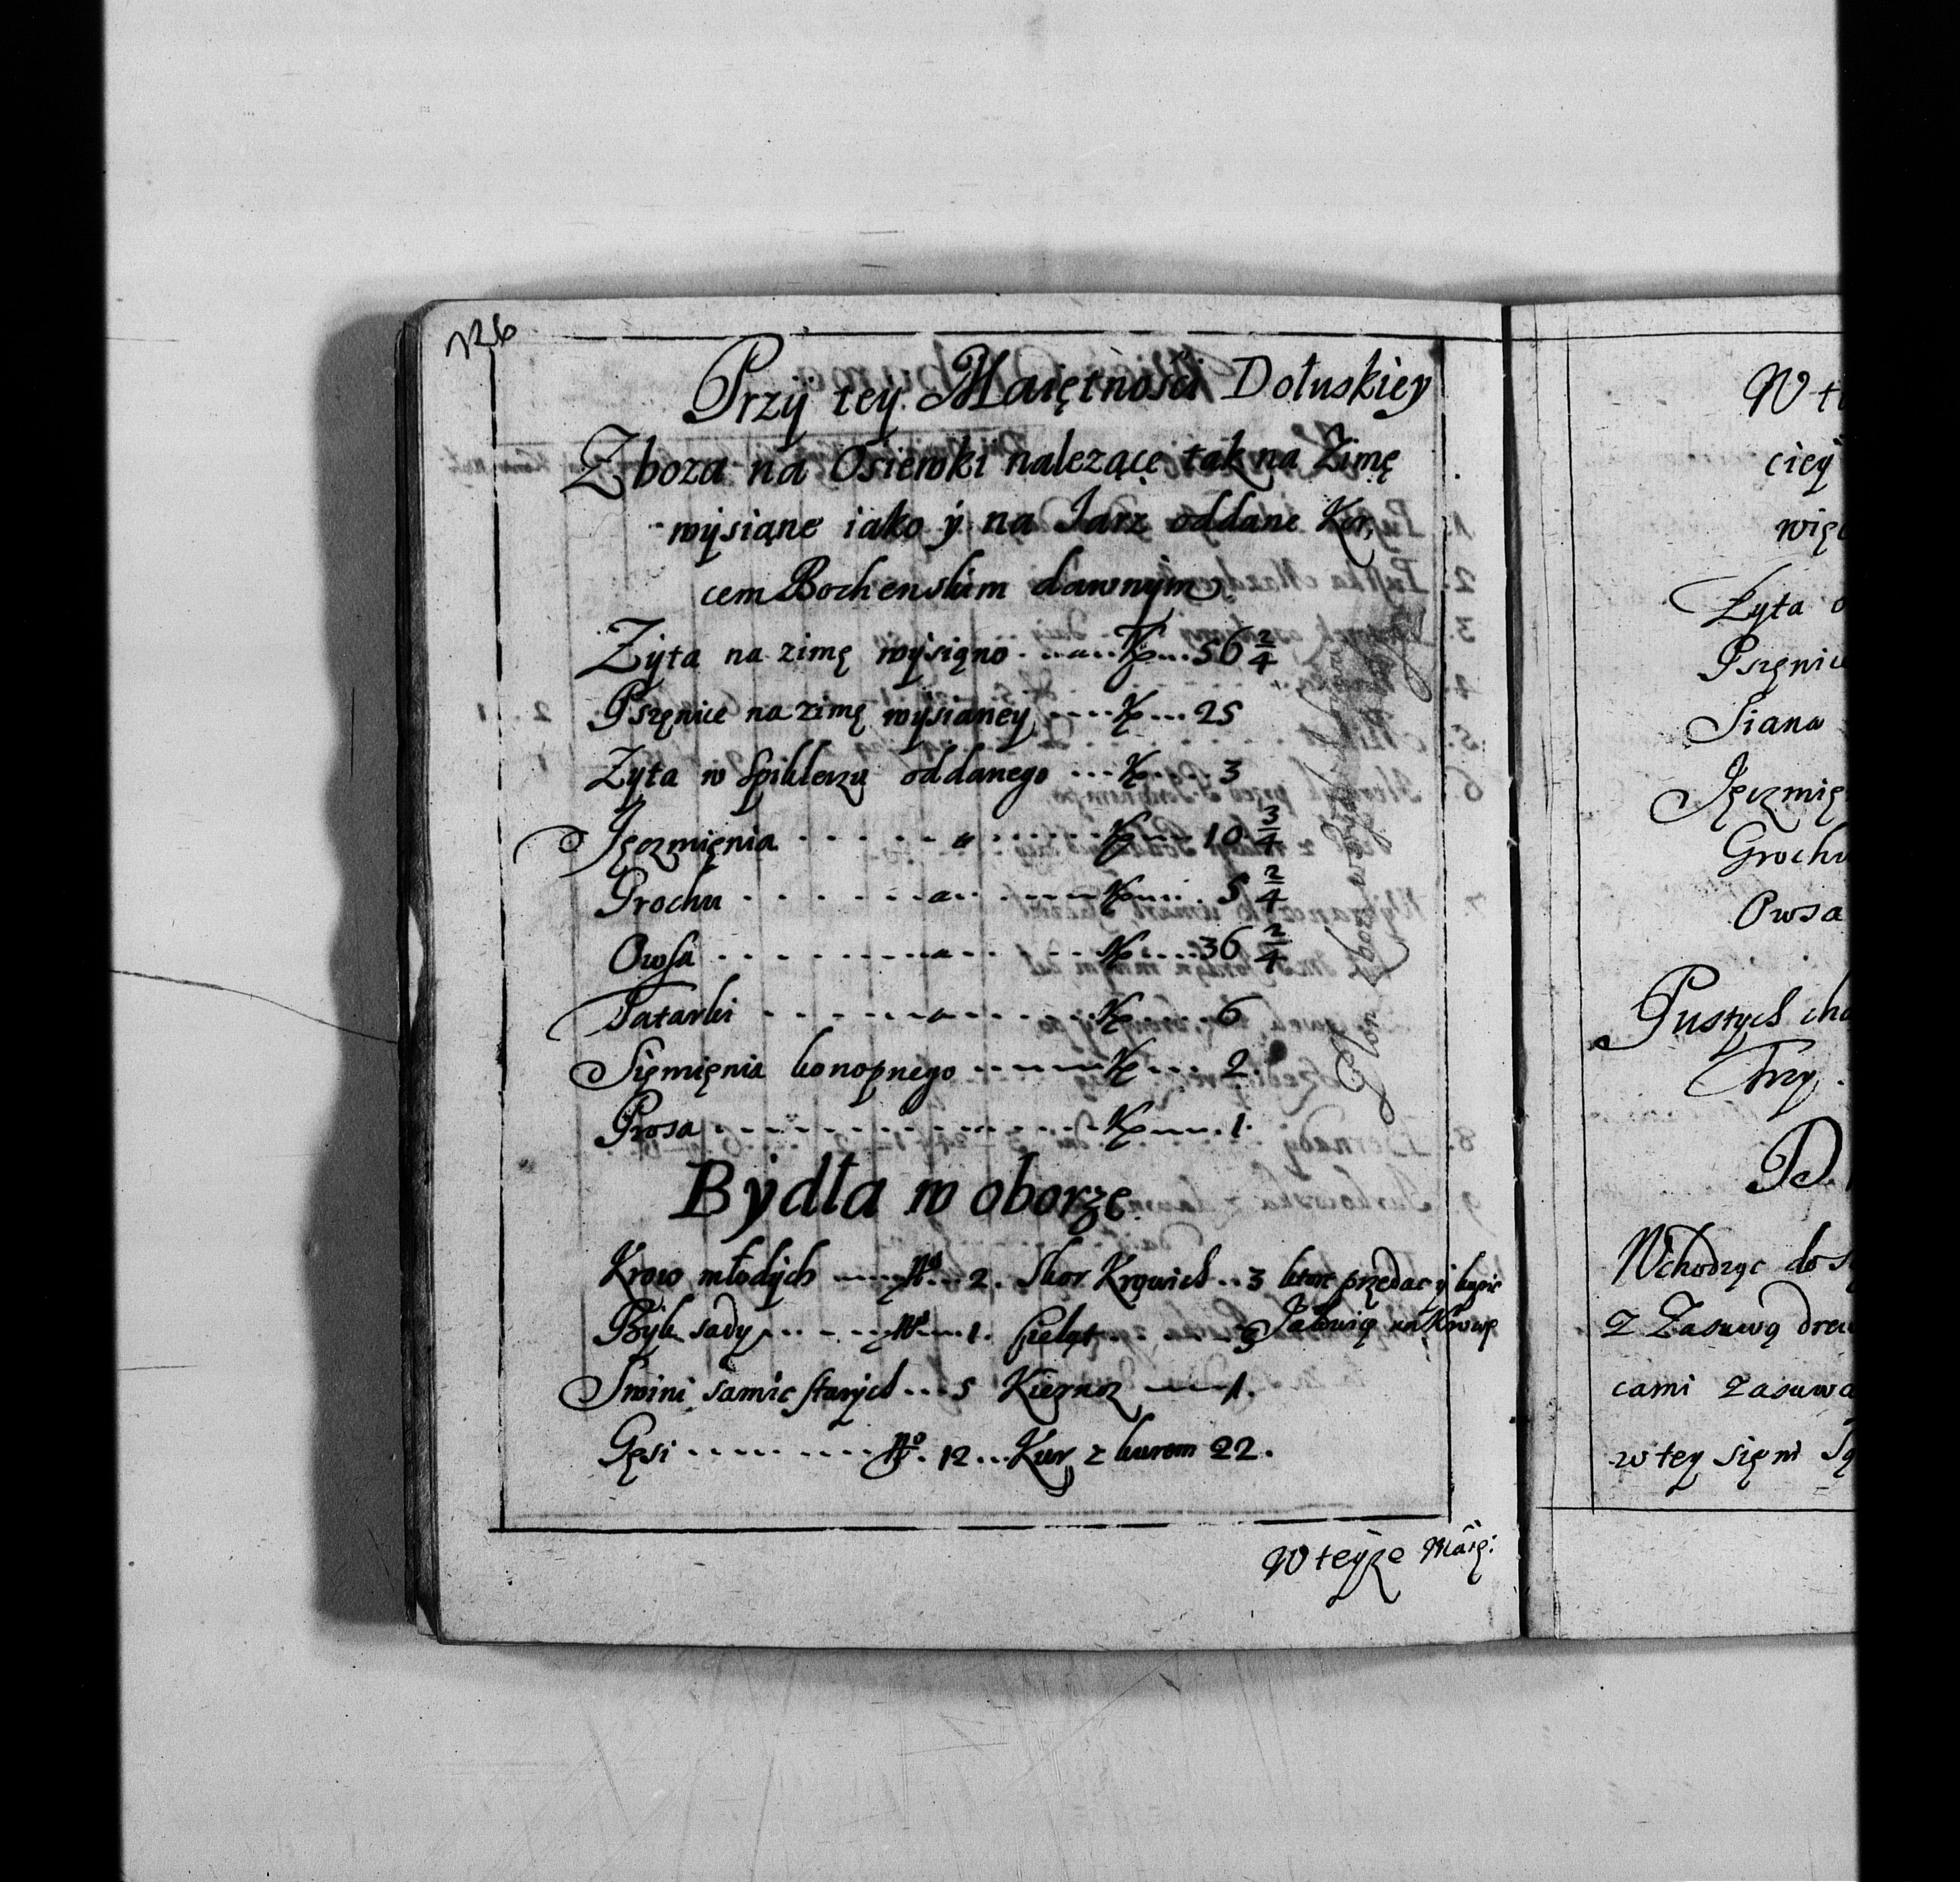 126
Przÿ teÿ Maiętności Dołuskiey
Zboza na Osiewki nalezące tak na Zimę
wÿsiąne iako ÿ na Jarz oddane Kor,
cem Bochenskim dawnÿm
Zÿta na zimę wÿsiąno Kr 56 2/4
Pszęnice na zimę wÿsianey Kr 25
Zyta w Spiklerzu oddanego Kr 3
Jęczmięnia Kr 10 3/4
Grochu Kr 5 2/4
Owsa Kr 36 2/4
Tatarki Kr 6
Sięmięnia konopnego Kr 2.
Prosa Kr 1.
Plon Zboza
Bÿdła w oborze
Krow młodÿch No 2. Skor Krowich 3 ktore przedac ÿ kupic
Byk sady No 1. Cieląt 3 Jałowię na Krowę
Swini samic starÿch 5 Kiernoz 1.
Gęsi No. 12 Kur z kurem 22.
W teÿze Maię:
W t
cieÿ
więc
Zyta o
Pszęnic
Siana
Jęczmię
Grochu
Owsa
Pustych cha
Trzy
D.
Wchodząc do s
z Zasuwą drew
cami zasuwa
w tey sięni